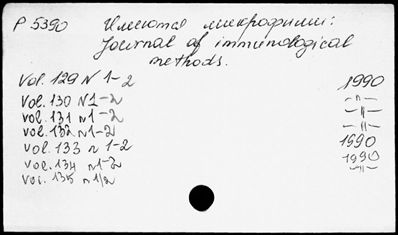 P 5390 Имеются микрофиши:
Journal of immunological
methods.
Vol. 129 N 1-2 1990
Vol. 130 N 1-2 -"-
Vol. 131 n 1-2 -"-
Vol. 132 n 1-2 -"-
Vol. 133 n 1-2 1990
Vol. 134 n 1-2 1990
Vol. 135 n 1/2 -"-